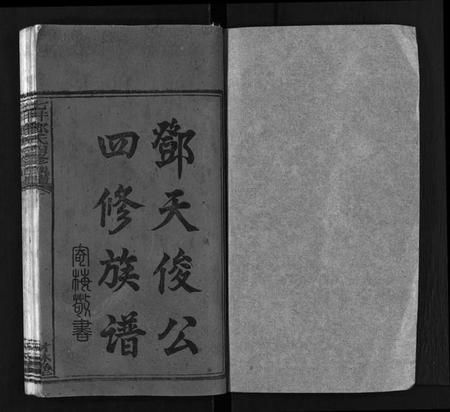 鄧天俊公
四修族谱
寄梅敬書